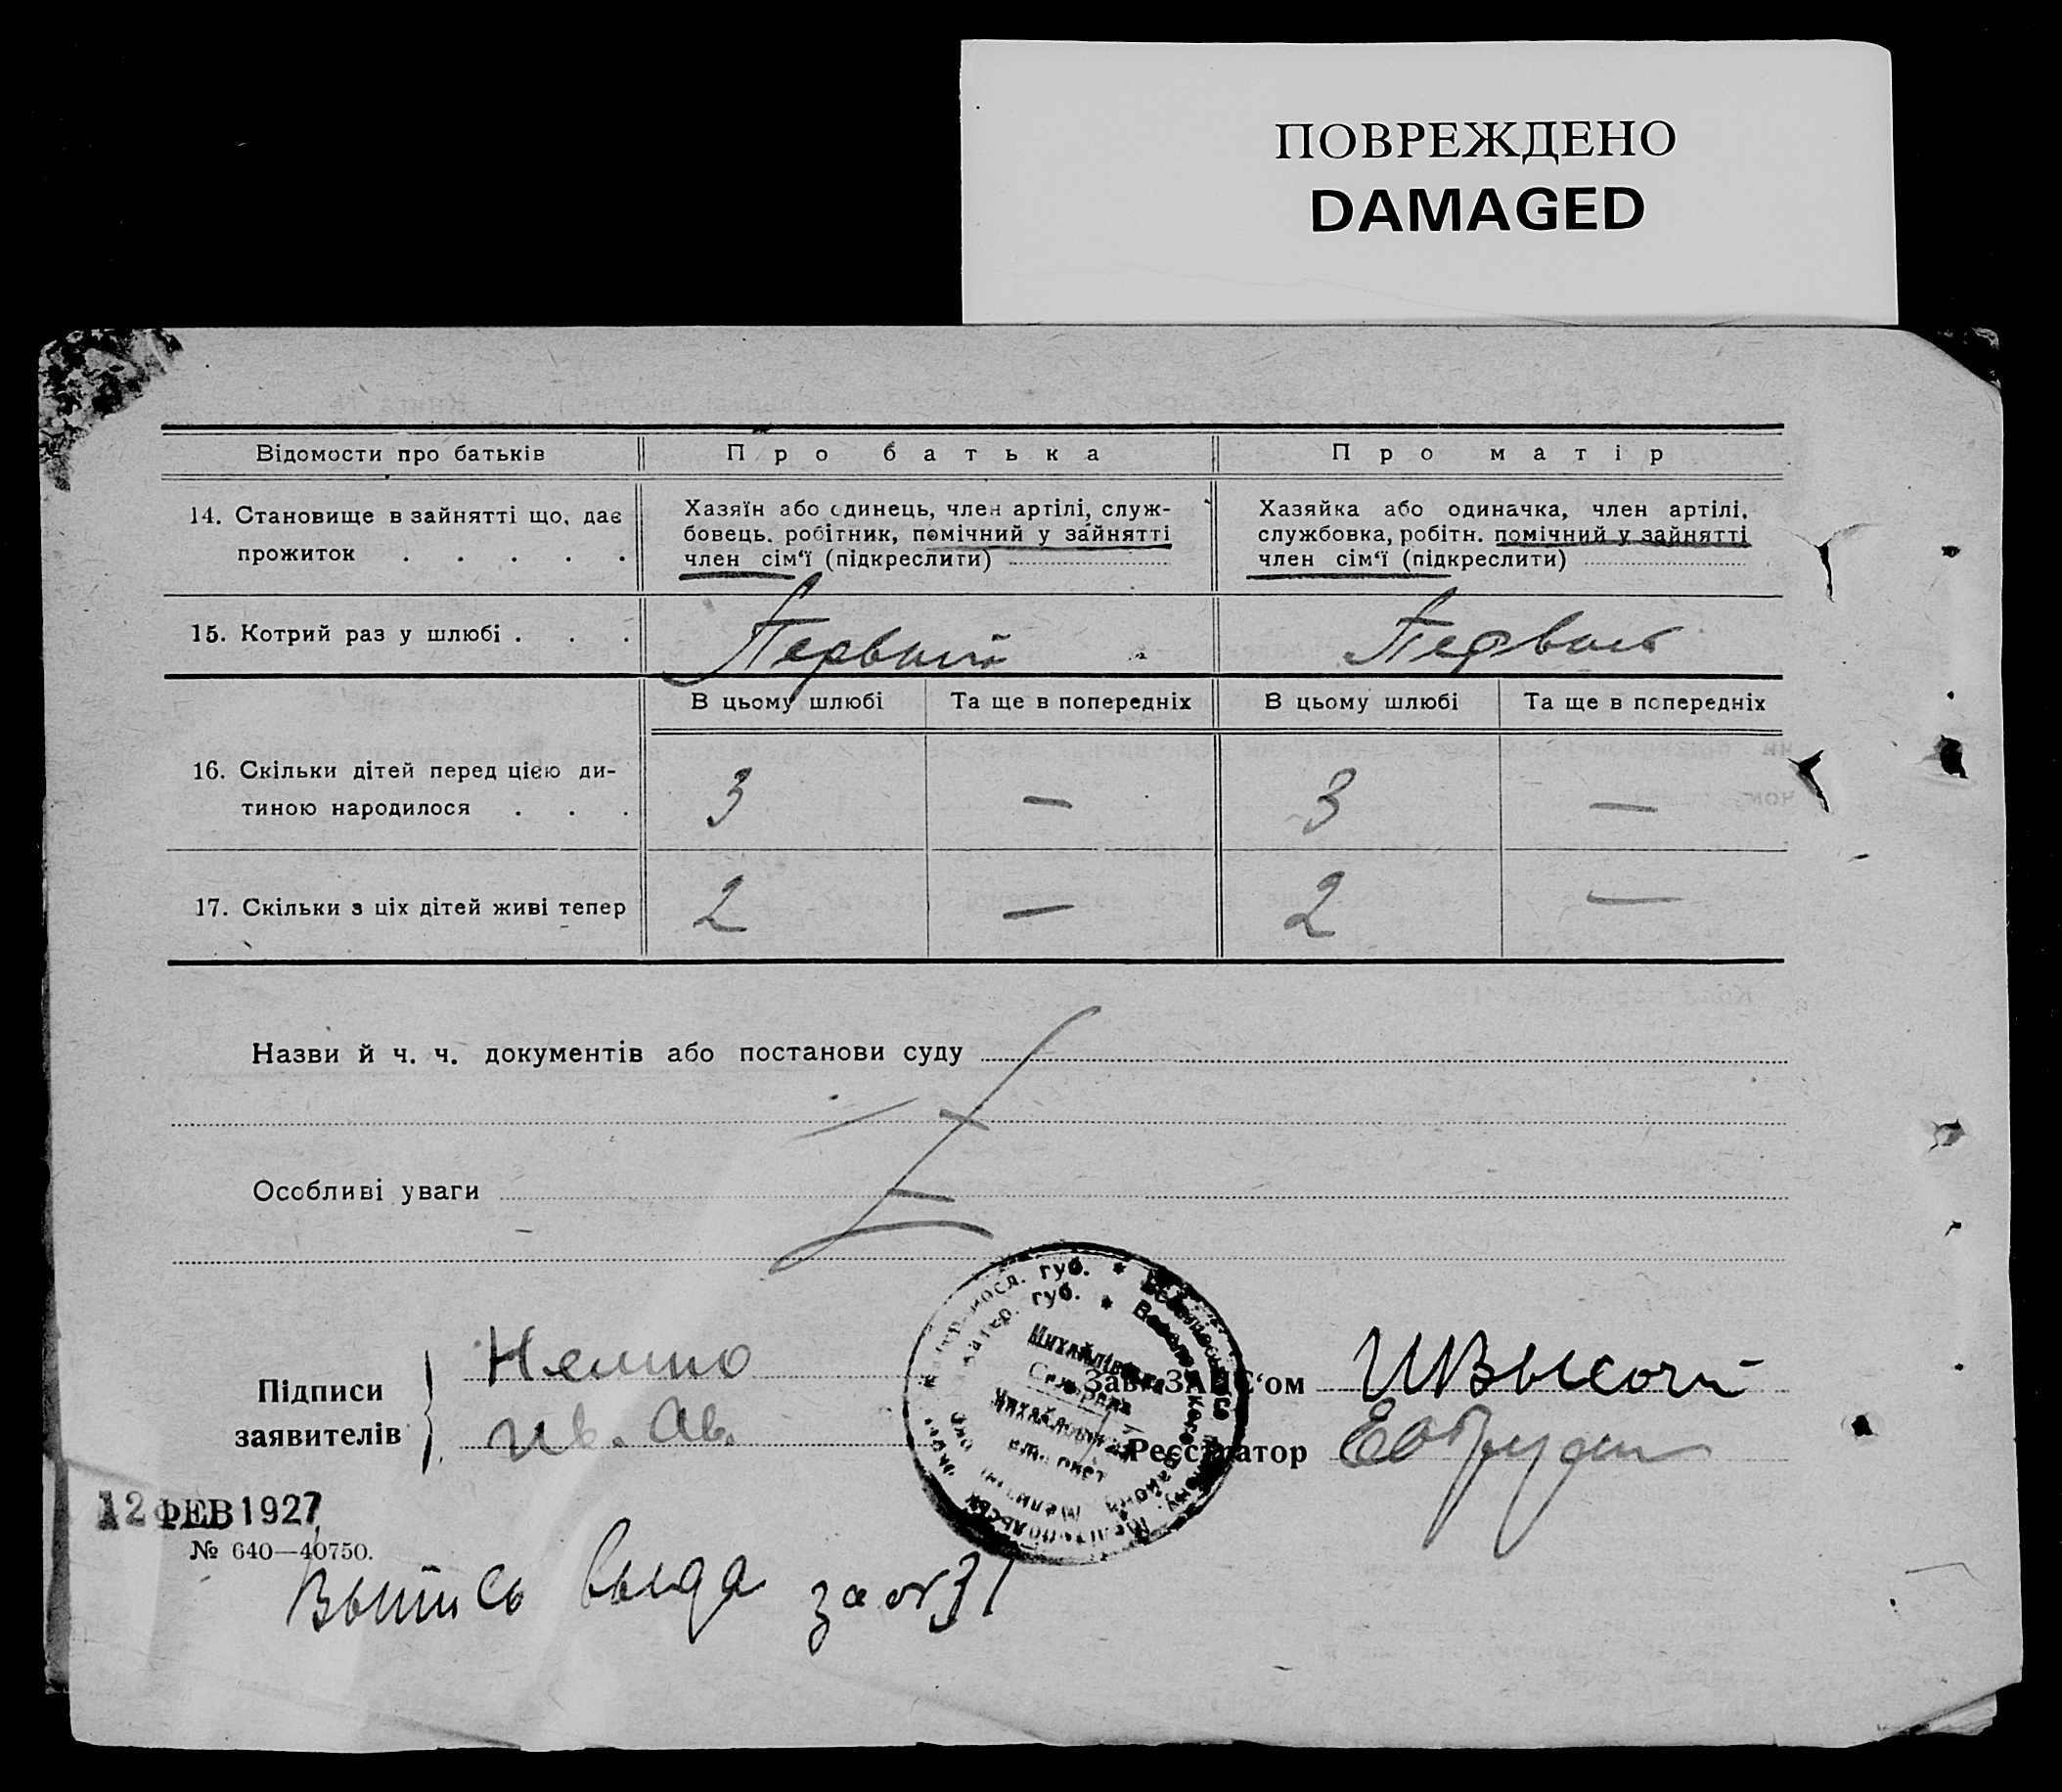 ПОВРЕЖДЕНО
DAMAGED
Відомости про батьків Про батька Про матір
14. Становище в зайнятті що, дає прожиток . . . . .
Хазяїн або одинець, член артілі, служ-
бовець, робітник, помічний у зайнятті
член сім‘ї (підкреслити)
Хазяйка або одиначка, член артілі,
службовка, робітн. помічний у зайнятті
член сім‘ї (підкреслити)
15. Котрий раз у шлюбі . . . Первый Первый
В цьому шлюбі Та ще в попередніх В цьому шлюбі Та ще в попередніх
16. Скільки дітей перед цією ди-
тиною народилося . . . 3 — 3 —
17. Скільки з ціх дітей живі тепер 2 — 2 —
Назви й ч. ч. документів або постанови суду
Особливі уваги
Підписи
заявителів
Ив. Ав.
губ.
губ.
Михайлівська
Зав. ЗАГС‘ом
Реєстратор
12 ФЕВ 1927
№ 640—40750.
Выпись выда за № 31